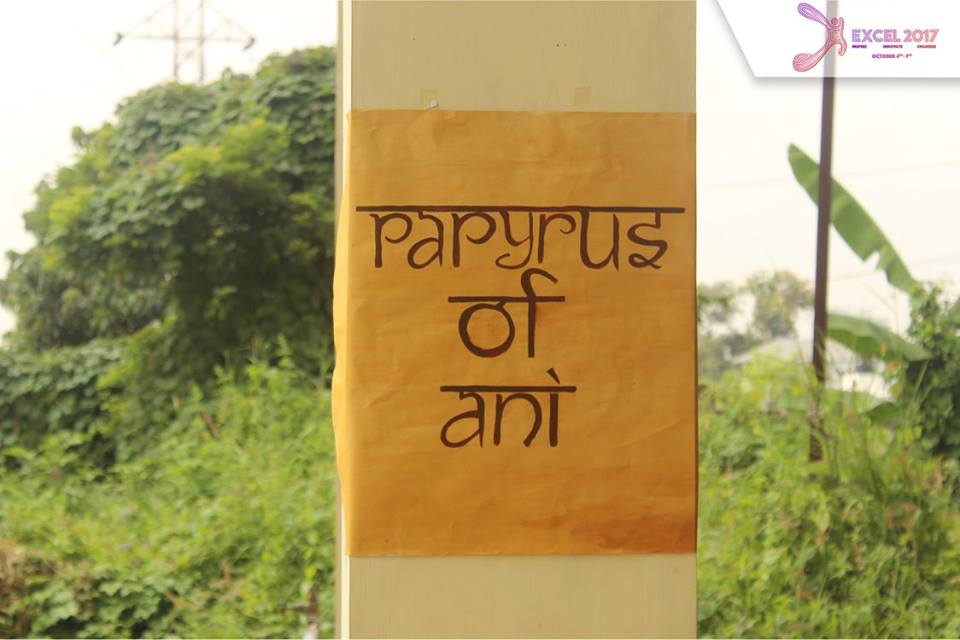 EXCEL 2017
INSPIRE INNOVATE ENGINEER
papyrus
of
ani